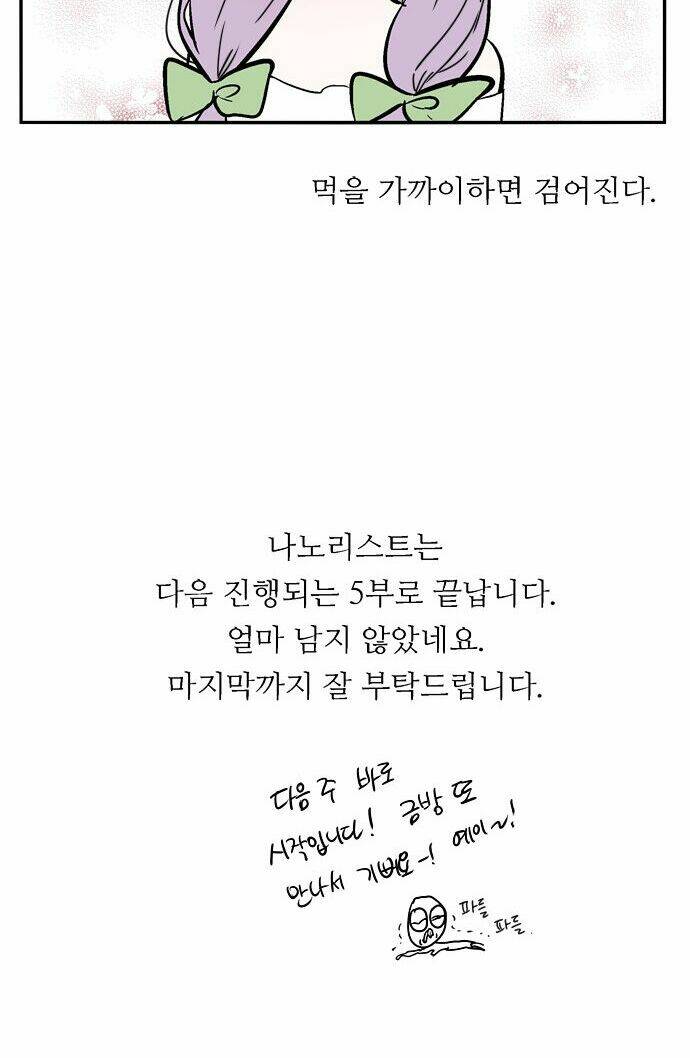 먹을 가까이하면 검어진다.
나노리스트는
다음 진행되는 5부로 끝납니다.
얼마 남지 않았네요.
마지막까지 잘 부탁드립니다.
다음 주 바로
시작입니다! 금방 또
만나서 기뻐요~! 예이~!
파들
파들